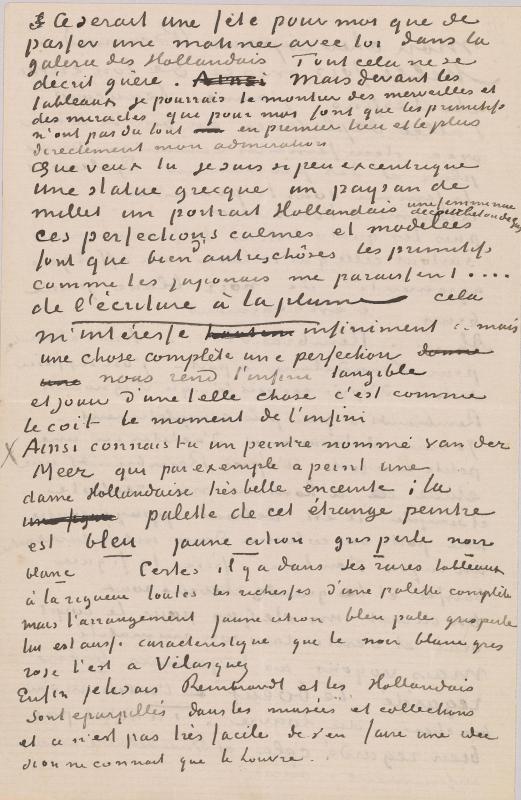 Ce serait une fête pour moi que de
passer une matinee avec toi dans la
galerie des Hollandais Tout cela ne se
decrit guère. Ainsi Mais devant les
tableaux je pourrais te montrer des merveilles et
des miracles que pour moi font que les primitifs
n'ont pas du tout en premier lieu et le plus
directement mon admiration.
Que veux tu je suis si peu excentrique
une statue grecque un paysan de
millet un portrait Hollandais une femme nue
de courbet ou degas
ces perfections calmes et modelées
font que bien d'autres chôses les primitifs
comme les japonais me paraissent ....
de l'écriture à la plume cela
m'intéresse infiniment mais
une chose complète une perfection donne
une nous rend l'infini tangible
et jouir d'une telle chose c'est comme
le coït le moment de l'infini
X Ainsi connais tu un peintre nommé van der
Meer qui par exemple a peint une
dame Hollandaise très belle enceinte; la
palette de cet étrange peintre
est bleu jaune citron gris perle noir
blanc Certes il y a dans ses rares tableaux
à la rigueur toutes les richesses d'une palette complète
mais l'arrangement jaune citron bleu pale gris perle
lui est aussi caracteristique que le noir blanc gris
rose l'est a Vélasquez
Enfin je le sais Rembrandt et les Hollandais
sont eparpillés dans les musées et collections
et ce n'est pas très facile de s'en faire une idée
si on ne connait que le Louvre.